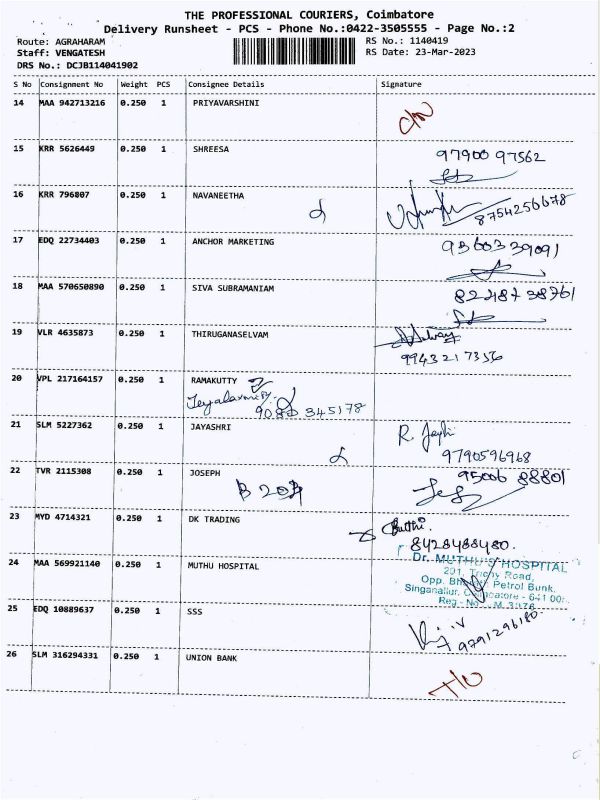 THE PROFESSIONAL COURIERS, Coimbatore
Delivery Runsheet - PCS - Phone No.:0422-3505555 - Page No.:2
Route: AGRAHARAM RS No.: 1140419
Staff: VENGATESH RS Date: 23-Mar-2023
DRS No.: DCJB114041902
S No Consignment No Weight PCS Consignee Details Signature
14 MAA 942713216 0.250 1 PRIYAVARSHINI
15 KRR 5626449 0.250 1 SHREESA 97900 97562
16 KRR 796807 0.250 1 NAVANEETHA
8754256678
17 EDQ 22734403 0.250 1 ANCHOR MARKETING 9360339091
18 MAA 570650890 0.250 1 SIVA SUBRAMANIAM
82248738761
19 VLR 4635873 0.250 1 THIRUGANASELVAM
9943217356
20 VPL 217164157 0.250 1 RAMAKUTTY
345178
21 SLM 5227362 0.250 1 JAYASHRI R. Jayhi
9790596968
22 TVR 2115308 0.250 1 JOSEPH 95006 88801
23 MYD 4714321 0.250 1 DK TRADING
8428488480.
24 MAA 569921140 0.250 1 MUTHU HOSPITAL Dr. MUTHU'S HOSPITAL
201, Trichy Road,
Opp. Petrol Bunk,
Singanallur, Coimbatore - 641 00
Reg - No
25 EDQ 10889637 0.250 1 SSS
9791296180
26 SLM 316294331 0.250 1 UNION BANK